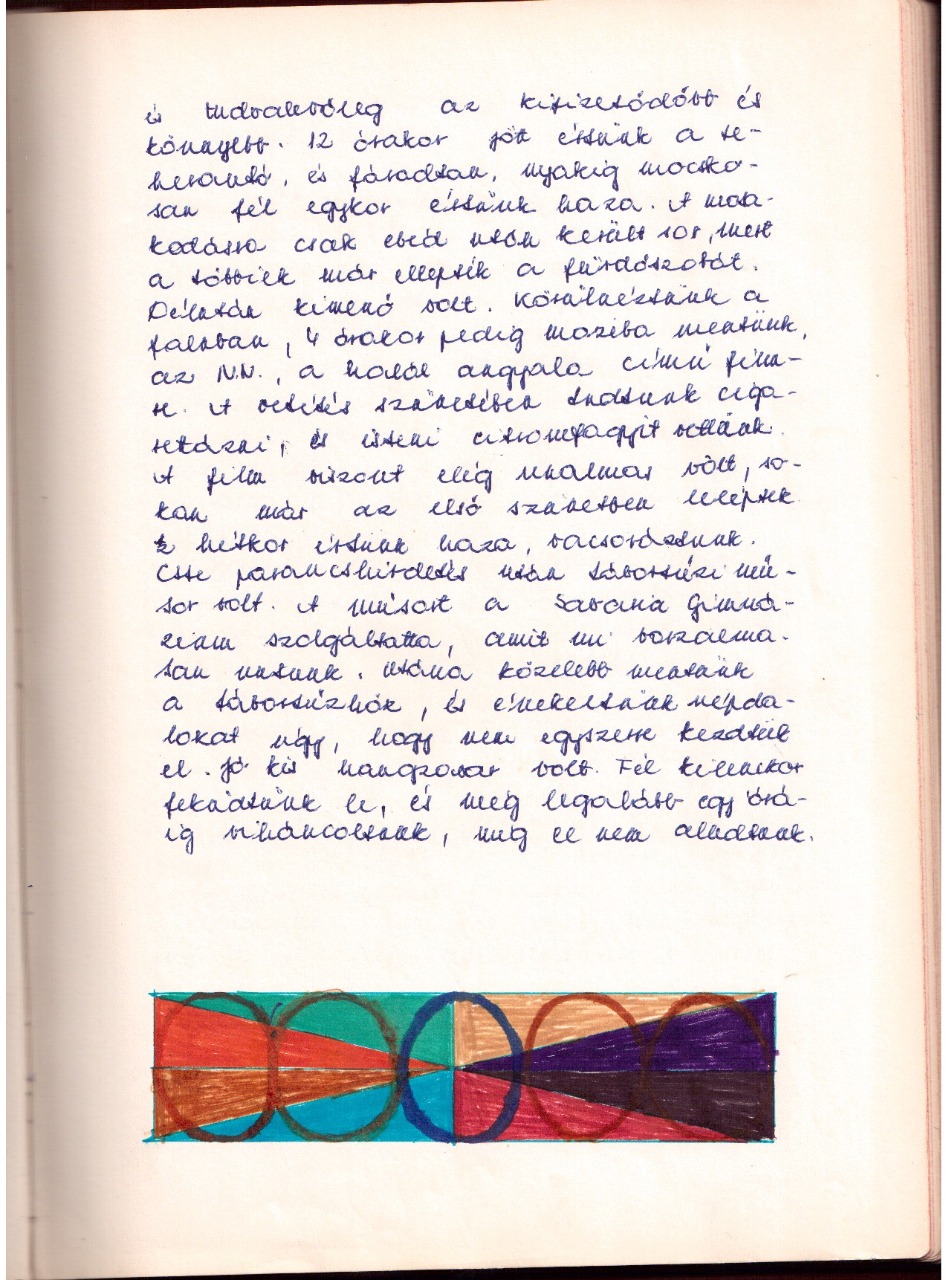 és tudvalevőleg az kifizetődőbb és
könnyebb. 12 órakor jött értünk a te-
herautó, és fáradtan, nyakig mocsko-
san fél egykor értünk haza. A mosa-
kodásra csak ebéd után került sor, mert
a többiek már ellepték a fürdőszobát.
Délután kimenő volt. Körülnéztünk a
faluban, 4 órakor pedig moziba mentünk,
az N.N., a halál angyala című film-
re. A vetítés szünetében tudtunk ciga-
rettázni, és isteni citromfagyit vettünk.
A film viszont elég unalmas volt, so-
kan már az első szünetben leléptek.
hétkor értünk haza, vacsoráztunk.
Este parancshirdetés után tábortűzi mű-
sor volt. A műsort a Savaria Gimná-
zium szolgáltatta, amit mi borzalma-
san untunk. Utána közelebb mentünk
a tábortűzhöz, és énekeltünk népda-
lokat úgy, hogy nem egyszerre kezdtük
el. Jó kis hangzavar volt. Fél kilenckor
feküdtünk le, és még legalább egy órá-
ig viháncoltunk, míg el nem aludtunk.